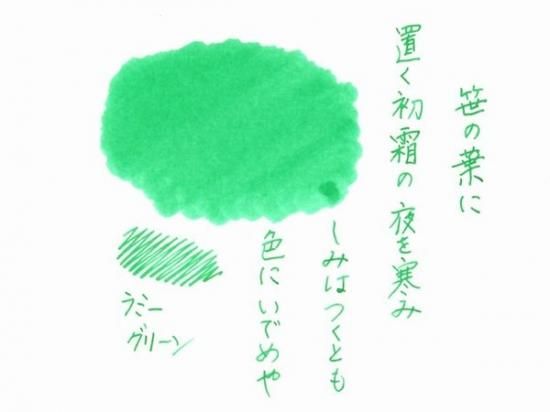 笹の葉に
置く初霜の夜を寒み
しみはつくとも
色にいでめや
ラミー
グリーン